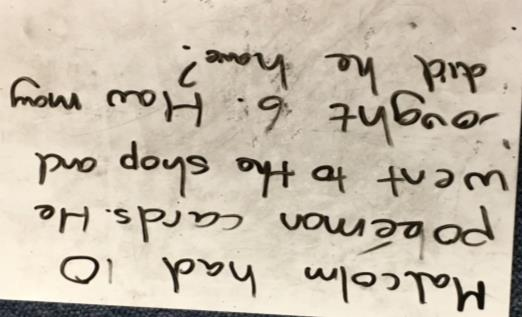 Malcolm had 10
pokémon cards. He
went to the shop and
bought 6. How many
did he have?